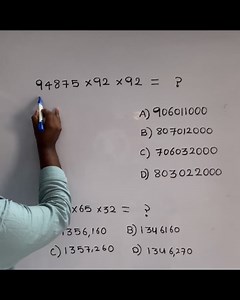 94875 × 92 × 92 = ?
A) 906011000
B) 807012000
C) 706032000
D) 803022000
× 65 × 32 = ?
1356,160 B) 1346160
C) 1357,260 D) 1346,270